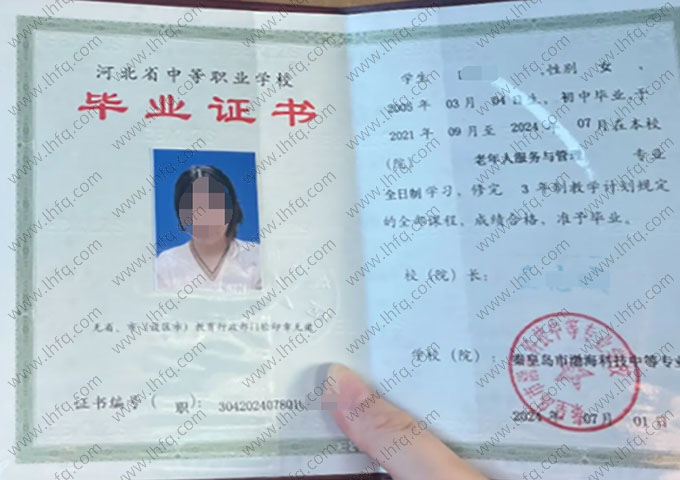 河北省中等职业学校
毕业证书
无省、市(设区市)教育行政部门验印章无效
证书编号(职):304202407801
学生 ,性别 女 、
2005年 03月 04日生、初中毕业 于
2021 年 09月至 2024年 07月在本校
(院) 老年人服务与管理 专业
全日制学习,修完 3 年制教学计划规定
的全部课程,成绩合格,准予毕业。
校(院)长:
学校(院):秦皇岛市渤海科技中等专业
2024年 07月 01日
www.lhfq.com